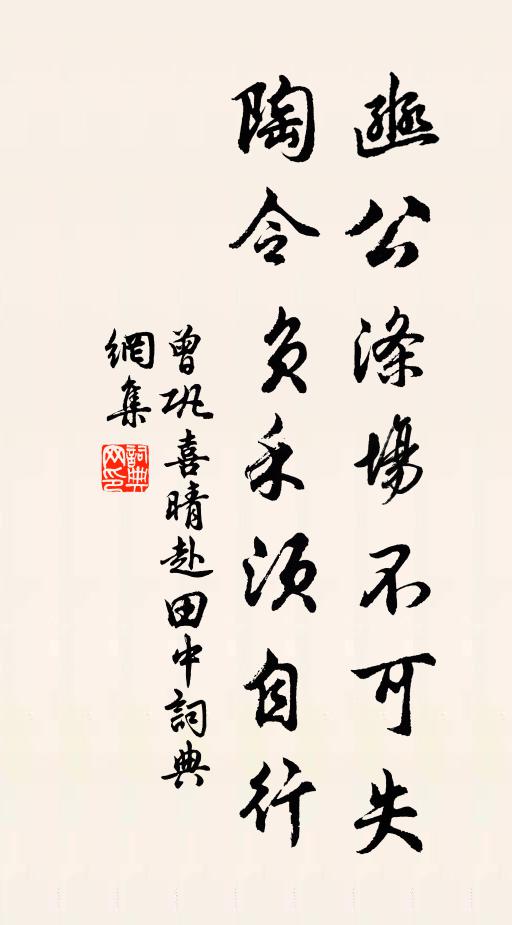 豳公滌場不可失
陶令負禾須自行
曾巩喜晴赴田中詞典
網集
詞典
网印